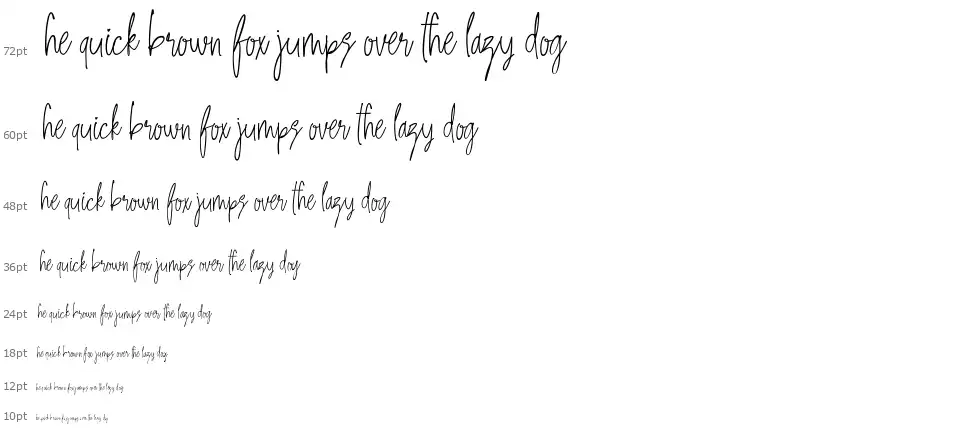 72pt he quick brown fox jumps over the lazy dog
60pt he quick brown fox jumps over the lazy dog
48pt he quick brown fox jumps over the lazy dog
36pt he quick brown fox jumps over the lazy dog
24pt he quick brown fox jumps over the lazy dog
18pt he quick brown fox jumps over the lazy dog
12pt he quick brown fox jumps over the lazy dog
10pt he quick brown fox jumps over the lazy dog